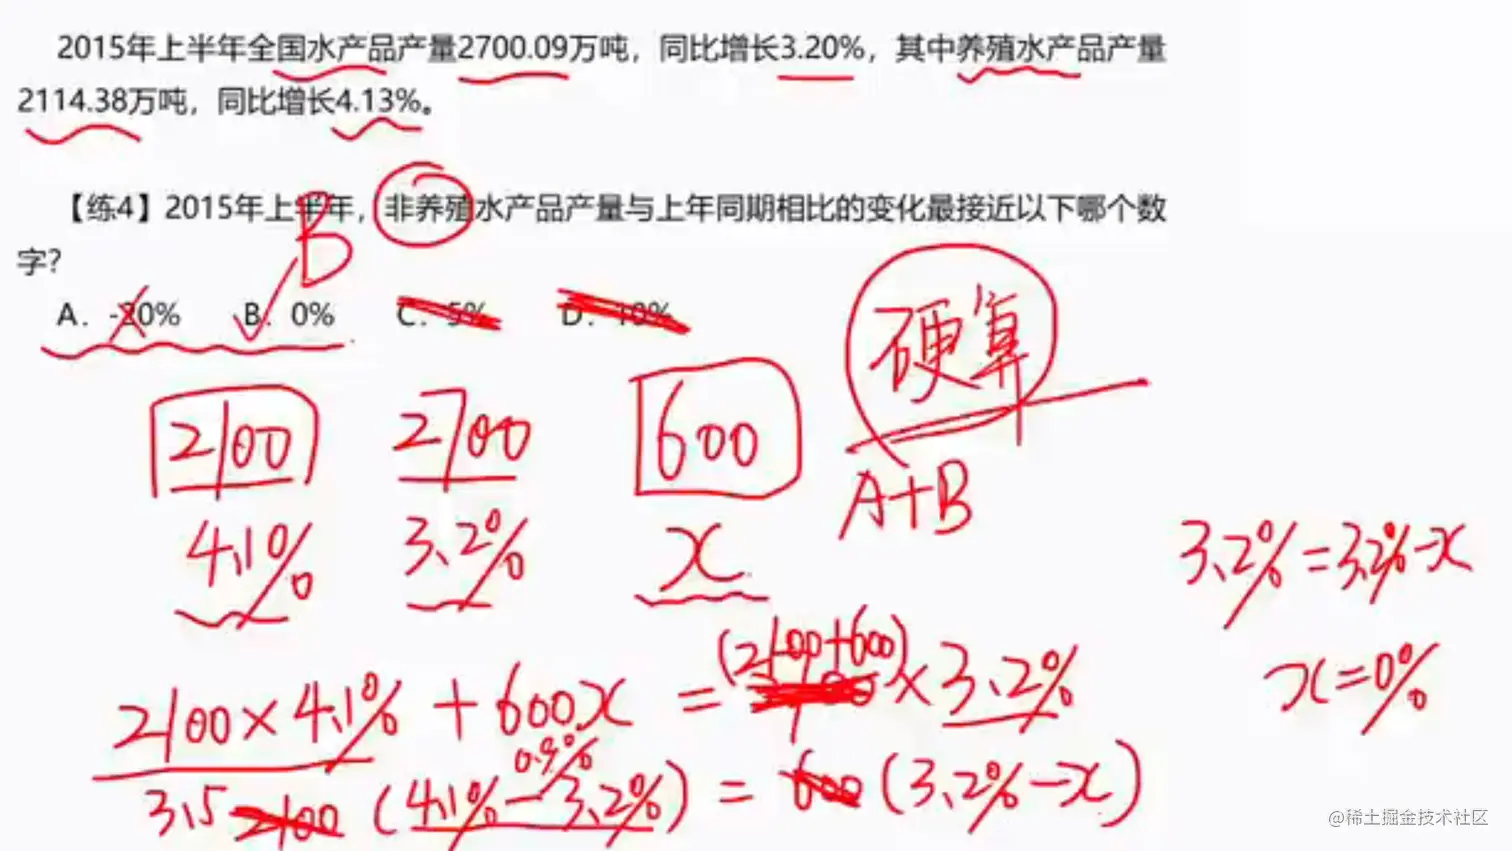 2015年上半年全国水产品产量2700.09万吨，同比增长3.20%，其中养殖水产品产量
2114.38万吨，同比增长4.13%。
【练4】2015年上半年，非养殖水产品产量与上年同期相比的变化最接近以下哪个数
字？
B
A. -20% B. 0% C. 5% D. 10%
硬算
2100 2700 600
A+B
4.1% 3.2% x
3.2%=3.2%-x
x=0%
(2100+600)
2100×4.1% + 600x = ×3.2%
0.9%
3.5 2100 (4.1%-3.2%) = 600 (3.2%-x)
@稀土掘金技术社区